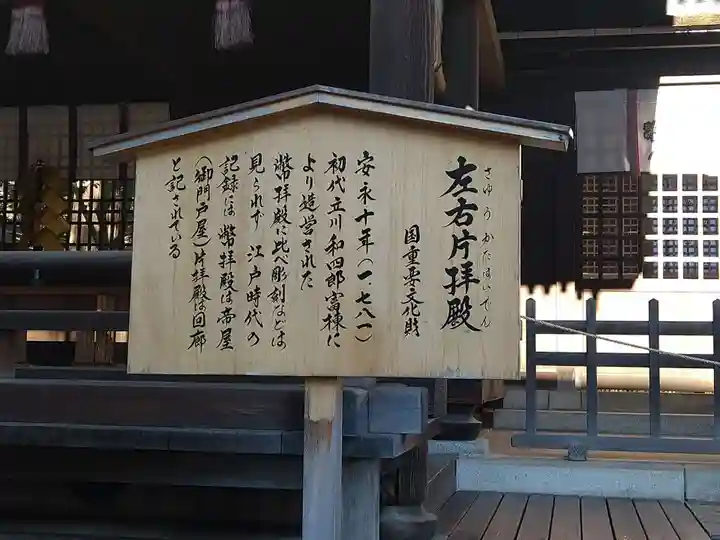 左右片拝殿
さゆうかたはいでん
国重要文化財
安永十年(一七八一)
初代立川和四郎富棟に
より造営された
幣拝殿に比べ彫刻などは
見られず 江戸時代の
記録には 幣拝殿は帝屋
(御門戸屋)片拝殿は回廊
と記されている